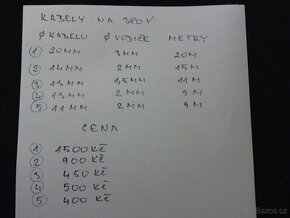 KABELY NA 380 V
Ø KABELU Ø VODIČE METRY
1 20MM 3MM 20M
2 14MM 2MM 15M
3 13MM 1,5MM 11M
4 13MM 2MM 9M
5 11MM 2MM 9M
CENA
1 1500 KČ
2 900 KČ
3 450 KČ
4 500 KČ
5 400 KČ